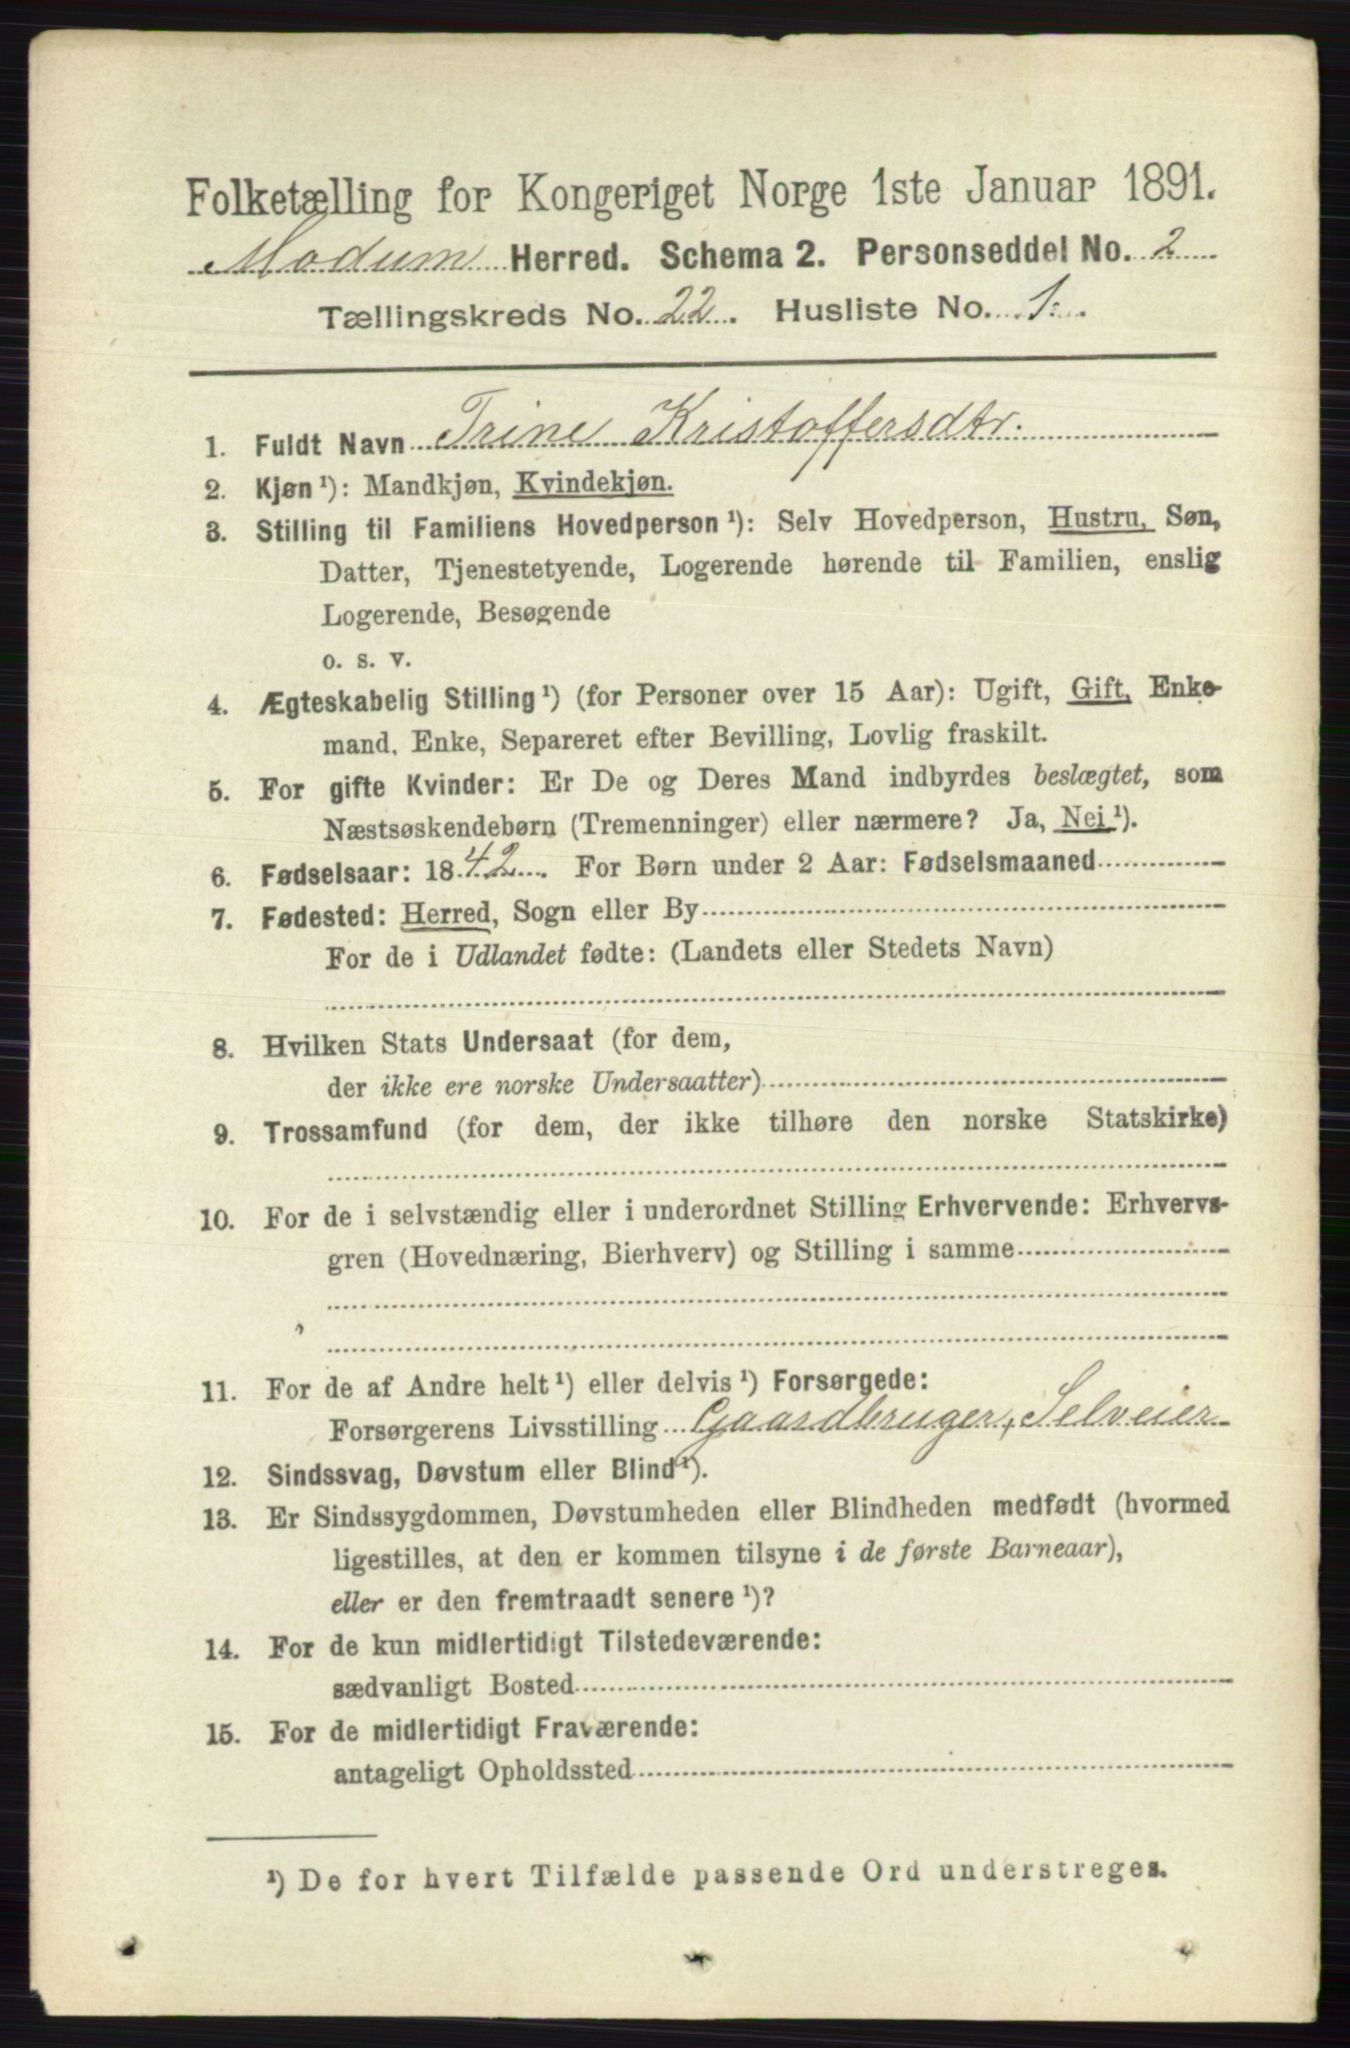 Folketælling for Kongeriget Norge 1ste Januar 1891.
Modum Herred. Schema 2. Personseddel No. 2
Tællingskreds No. 22. Husliste No. 1.
1. Fuldt Navn Trine Kristoffersdtr.
2. Kjøn¹): Mandkjøn, Kvindekjøn.
3. Stilling til Familiens Hovedperson¹): Selv Hovedperson, Hustru, Søn,
Datter, Tjenestetyende, Logerende hørende til Familien, enslig
Logerende, Besøgende
o. s. v.
4. Ægteskabelig Stilling¹) (for Personer over 15 Aar): Ugift, Gift, Enke-
mand, Enke, Separeret efter Bevilling, Lovlig fraskilt.
5. For gifte Kvinder: Er De og Deres Mand indbyrdes beslægtet, som
Næstsøskendebørn (Tremenninger) eller nærmere? Ja, Nei¹).
6. Fødselsaar: 1842. For Børn under 2 Aar: Fødselsmaaned
7. Fødested: Herred, Sogn eller By
For de i Udlandet fødte: (Landets eller Stedets Navn)
8. Hvilken Stats Undersaat (for dem,
der ikke ere norske Undersaatter)
9. Trossamfund (for dem, der ikke tilhøre den norske Statskirke)
10. For de i selvstændig eller i underordnet Stilling Erhvervende: Erhvervs-
gren (Hovednæring, Bierhverv) og Stilling i samme
11. For de af Andre helt¹) eller delvis¹) Forsørgede:
Forsørgerens Livsstilling Gaardbruger, Selveier
12. Sindssvag, Døvstum eller Blind¹).
13. Er Sindssygdommen, Døvstumheden eller Blindheden medfødt (hvormed
ligestilles, at den er kommen tilsyne i de første Barneaar),
eller er den fremtraadt senere¹)?
14. For de kun midlertidigt Tilstedeværende:
sædvanligt Bosted
15. For de midlertidigt Fraværende:
antageligt Opholdssted
¹) De for hvert Tilfælde passende Ord understreges.